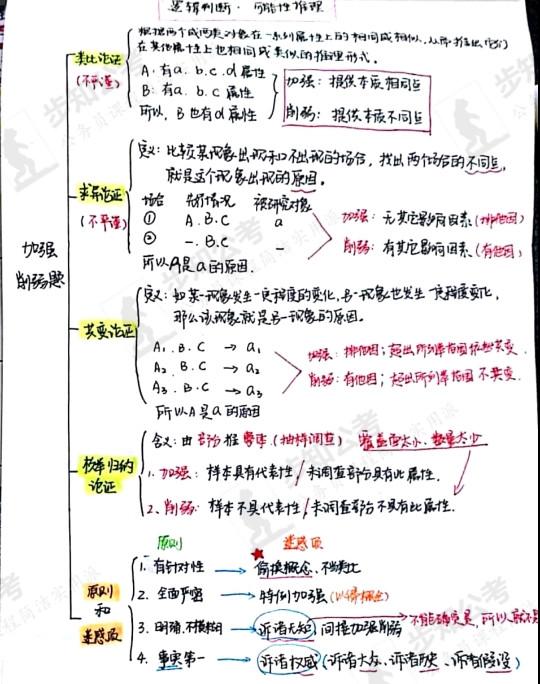 逻辑判断·可能性推理
加强
削弱题
类比论证
(不严谨)
根据两个或两类对象在一系列属性上的相同或相似,从而推出它们
在其他属性上也相同或类似的推理形式。
A:有a.b.c.d属性
B:有a.b.c属性
所以,B也有d属性
加强:提供本质相同点
削弱:提供本质不同点
求异论证
(不严谨)
定义:比较某现象出现和不出现的场合,找出两个场合的不同点,
就是这个现象出现的原因。
场合 先行情况 被研究对象
① A.B.C a
② -.B.C -
所以A是a的原因.
加强:无其它影响因素(排他因)
削弱:有其它影响因素(有他因)
共变论证
定义:如某一现象发生一定程度的变化,另一现象也发生一定程度变化,
那么该现象就是另一现象的原因。
A₁.B.C → a₁
A₂.B.C → a₂
A₃.B.C → a₃
所以A是a的原因
加强:排他因;超出所列举范围依然共变.
削弱:有他因;超出所列举范围不共变.
枚举归纳
论证
含义:由部分推整体(抽样调查) 覆盖面大小、数量大少
1.加强:样本具有代表性/未调查部分具有此属性.
2.削弱:样本不具代表性/未调查部分不具有此属性.
原则
和
迷惑项
原则 迷惑项
1.有针对性 → 偷换概念、不当类比
2.全面严密 → 特例加强(以偏概全)
3.明确,不模糊 → 诉诸无知,间接加强削弱 → 不能确定是,所以就不是
4.事实第一 → 诉诸权威(诉诸大众、诉诸历史、诉诸假设)
步知公考
公务员课